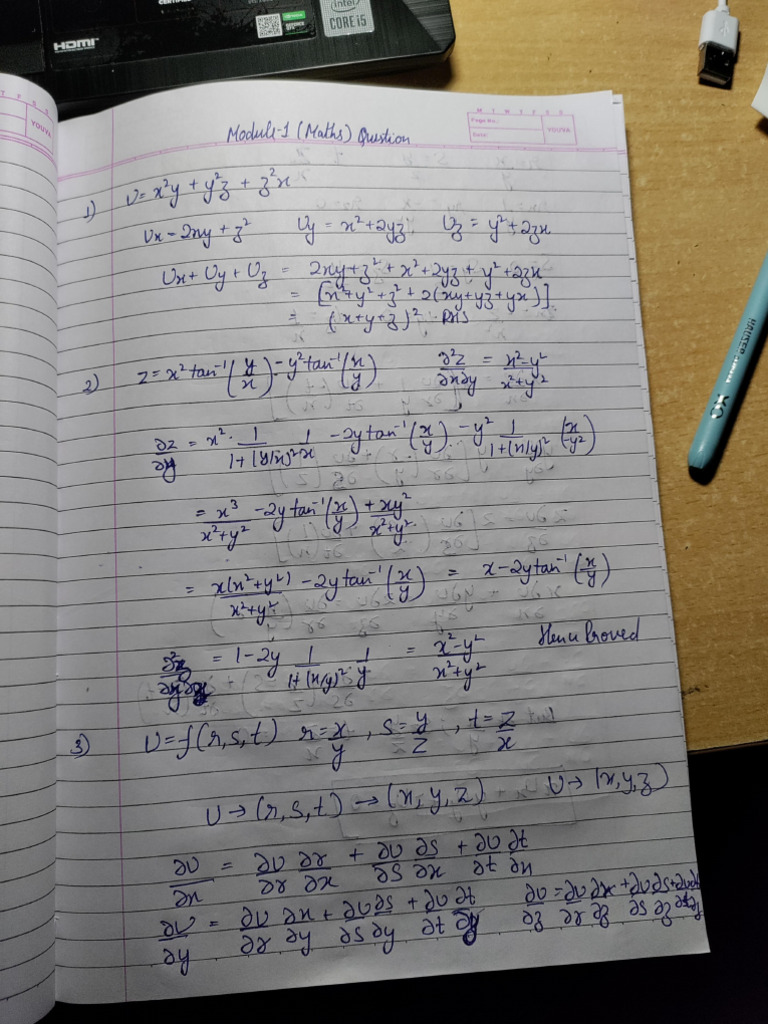 HDMI
intel
CORE i5
M T W T F S S
Page No.:
Date:
YOUVA
YOUVA
Module-1 (Maths) Question
1) U = x²y + y²z + z²x
Ux = 2xy + z² Uy = x² + 2yz Uz = y² + 2zx
Ux + Uy + Uz = 2xy + z² + x² + 2yz + y² + 2zx
= [x² + y² + z² + 2(xy + yz + yx)]
= (x + y + z)² RHS
2) z = x² tan⁻¹(y/x) - y² tan⁻¹(x/y) ∂²z/∂x∂y = x² - y²/x² + y²
∂z/∂y = x² · 1/1 + (y/x)² 1/x - 2y tan⁻¹(x/y) - y² 1/1 + (x/y)² (x/y²)
= x³/x² + y² - 2y tan⁻¹(x/y) + xy²/x² + y²
= x(x² + y²)/x² + y² - 2y tan⁻¹(x/y) = x - 2y tan⁻¹(x/y)
= 1 - 2y 1/1 + (x/y)² · 1/y = x² - y²/x² + y² Hence Proved
3) U = f(r, s, t) r = x/y , s = y/z , t = z/x
U → (r, s, t) → (x, y, z) U → (x, y, z)
∂U/∂x = ∂U/∂r ∂r/∂x + ∂U/∂s ∂s/∂x + ∂U/∂t ∂t/∂x
∂U/∂y = ∂U/∂r ∂r/∂y + ∂U/∂s ∂s/∂y + ∂U/∂t ∂t/∂y ∂U/∂z = ∂U/∂r ∂r/∂z + ∂U/∂s ∂s/∂z + ∂U/∂t ∂t/∂z